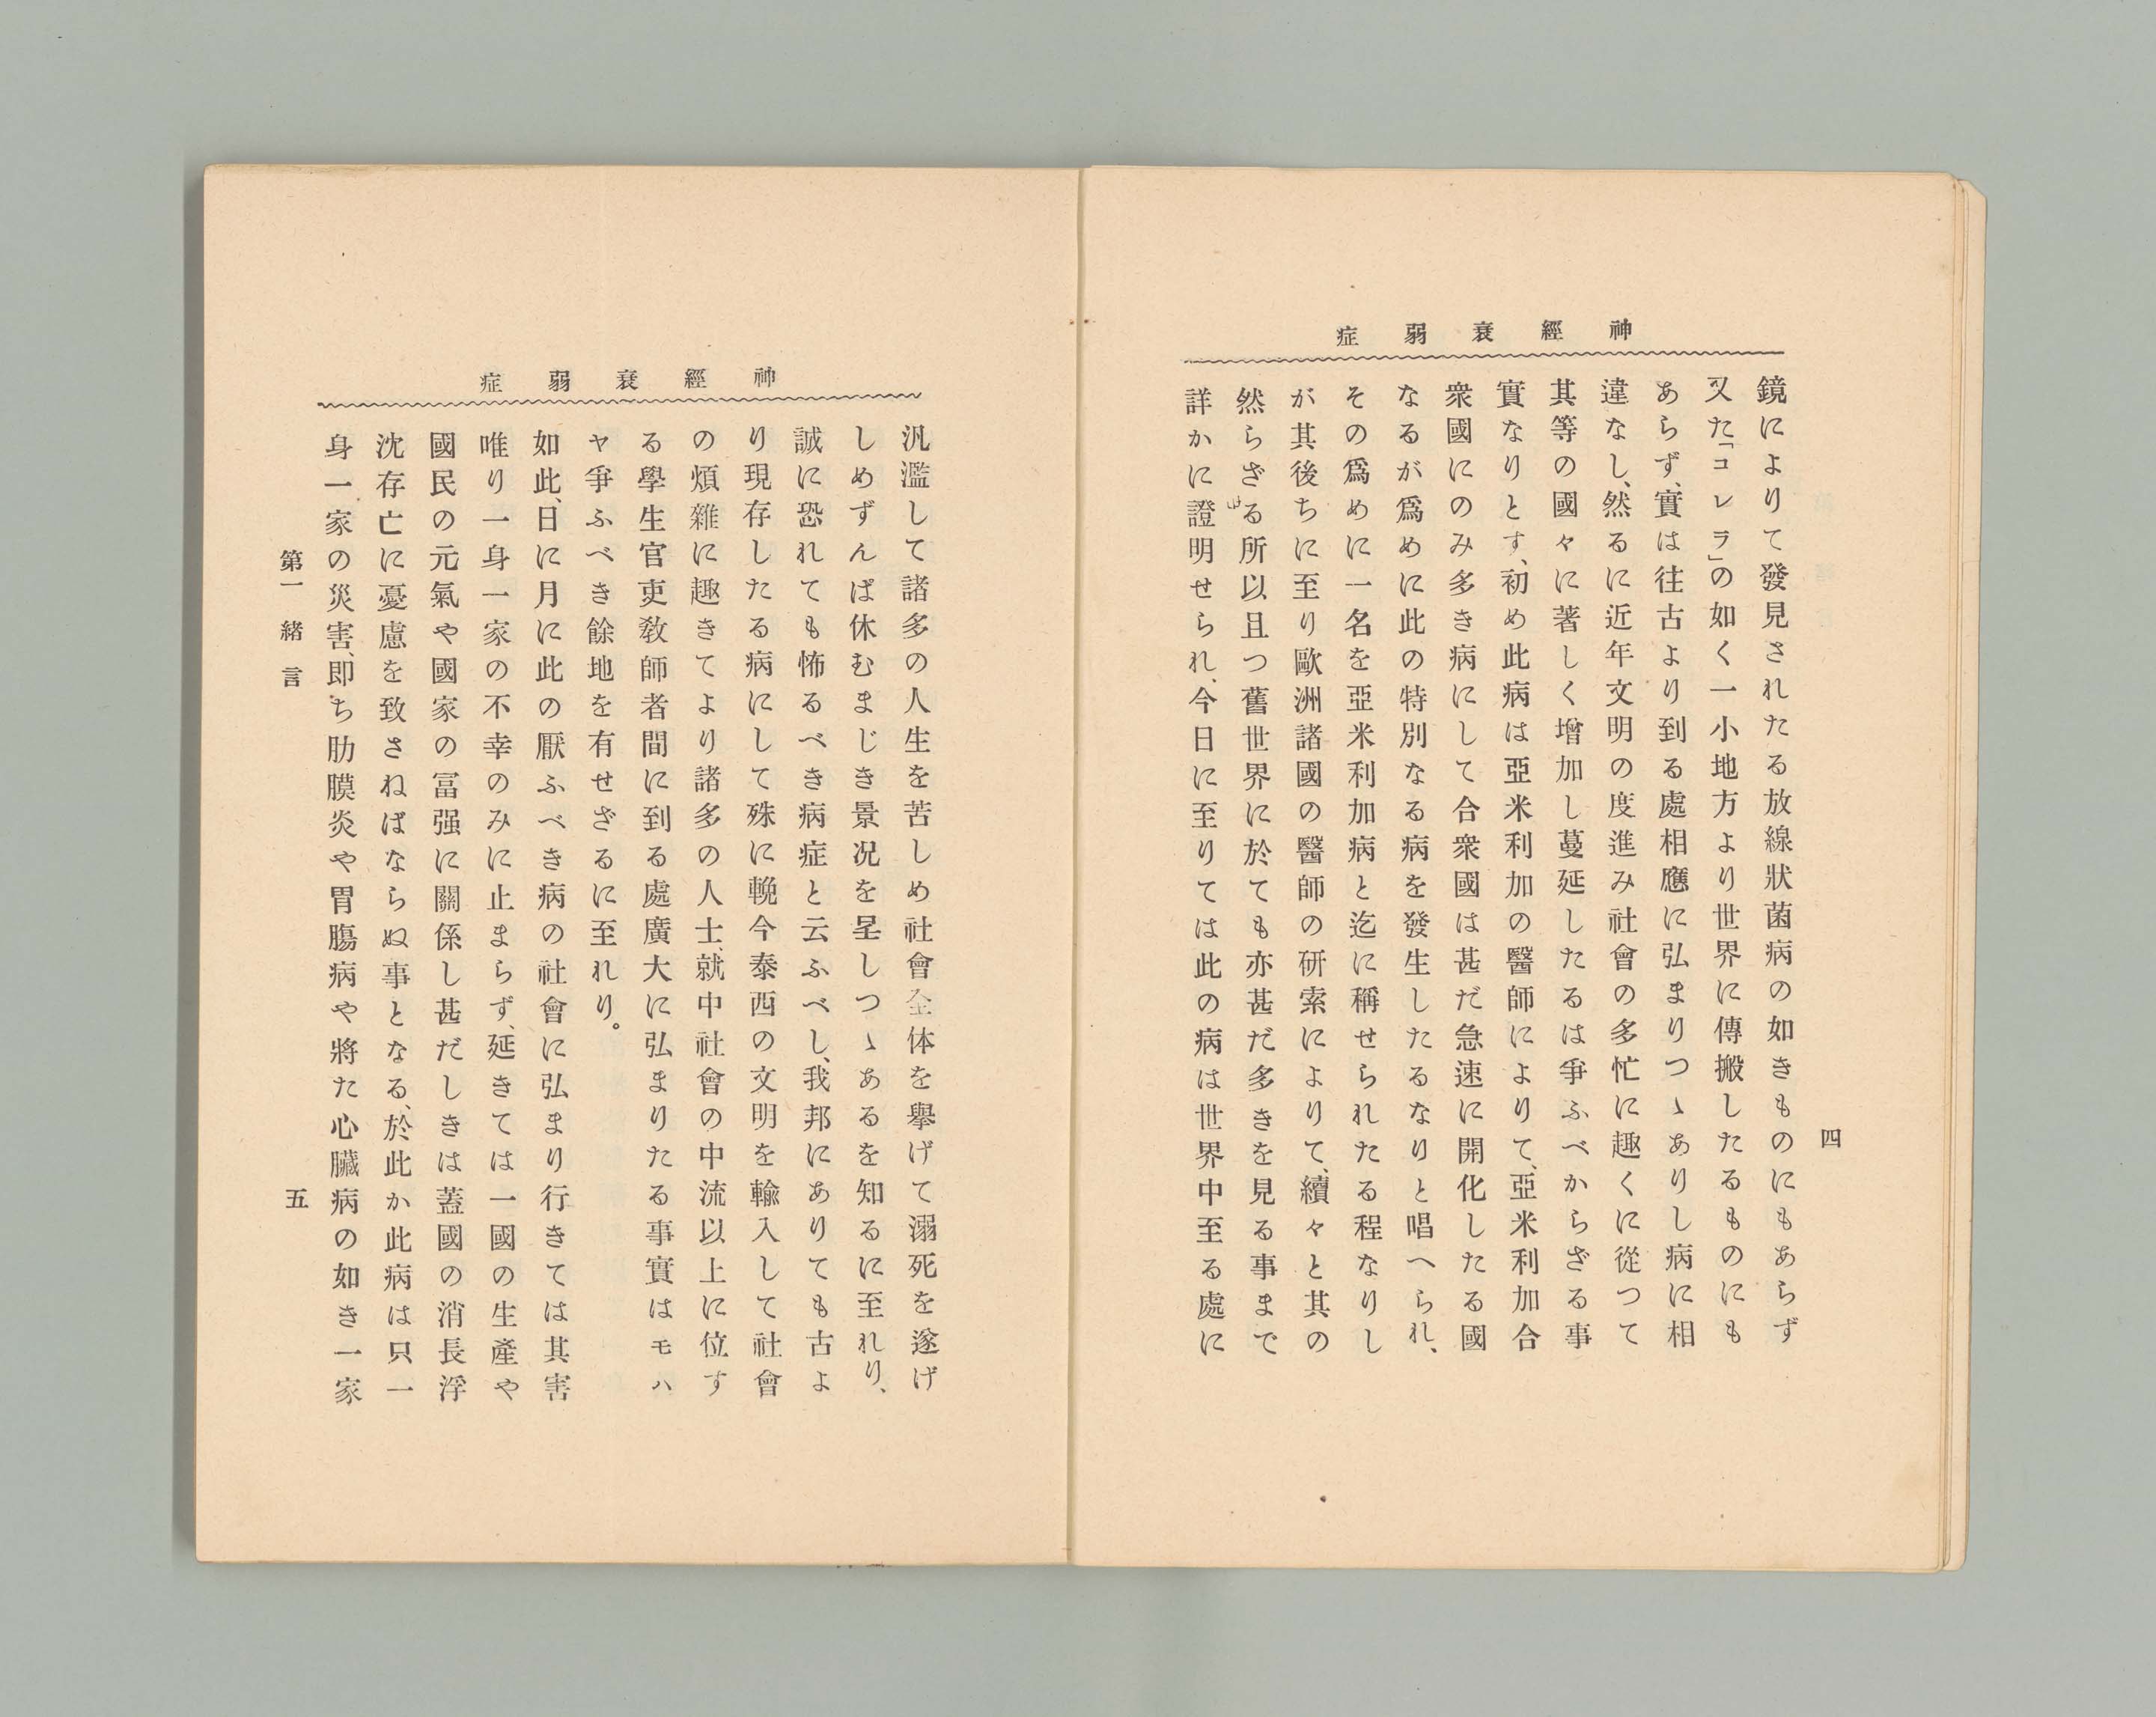 神經衰弱症
四
鏡によりて發見されたる放線狀菌病の如きものにもあらず
又た「コレラ」の如く一小地方より世界に傳搬したるものにも
あらず、實は往古より到る處相應に弘まりつゝありし病に相
違なし、然るに近年文明の度進み社會の多忙に趣くに從つて
其等の國々に著しく增加し蔓延したるは爭ふべからざる事
實なりとす、初め此病は亞米利加の醫師によりて、亞米利加合
衆國にのみ多き病にして合衆國は甚だ急速に開化したる國
なるが爲めに此の特別なる病を發生したるなりと唱へられ、
その爲めに一名を亞米利加病と迄に稱せられたる程なりし
が其後ちに至り歐洲諸國の醫師の研索によりて、續々と其の
然らざる所以且つ舊世界に於ても亦甚だ多きを見る事まで
詳かに證明せられ、今日に至りては此の病は世界中至る處に
神經衰弱症
汎濫して諸多の人生を苦しめ社會全体を擧げて溺死を遂げ
しめずんば休むまじき景况を呈しつゝあるを知るに至れり、
誠に恐れても怖るべき病症と云ふべし、我邦にありても古よ
り現存したる病にして殊に輓今泰西の文明を輸入して社會
の煩雜に趣きてより諸多の人士、就中社會の中流以上に位す
る學生官吏敎師者間に到る處廣大に弘まりたる事實はモハ
ヤ爭ふべき餘地を有せざるに至れり。
如此、日に月に此の厭ふべき病の社會に弘まり行きては其害
唯り一身一家の不幸のみに止まらず、延きては一國の生產や
國民の元氣や國家の富强に關係し甚だしきは蓋國の消長浮
沈存亡に憂慮を致さねばならぬ事となる、於此か此病は只一
身一家の災害、即ち肋膜炎や胃膓病や將た心臟病の如き一家
第一 緒言
五